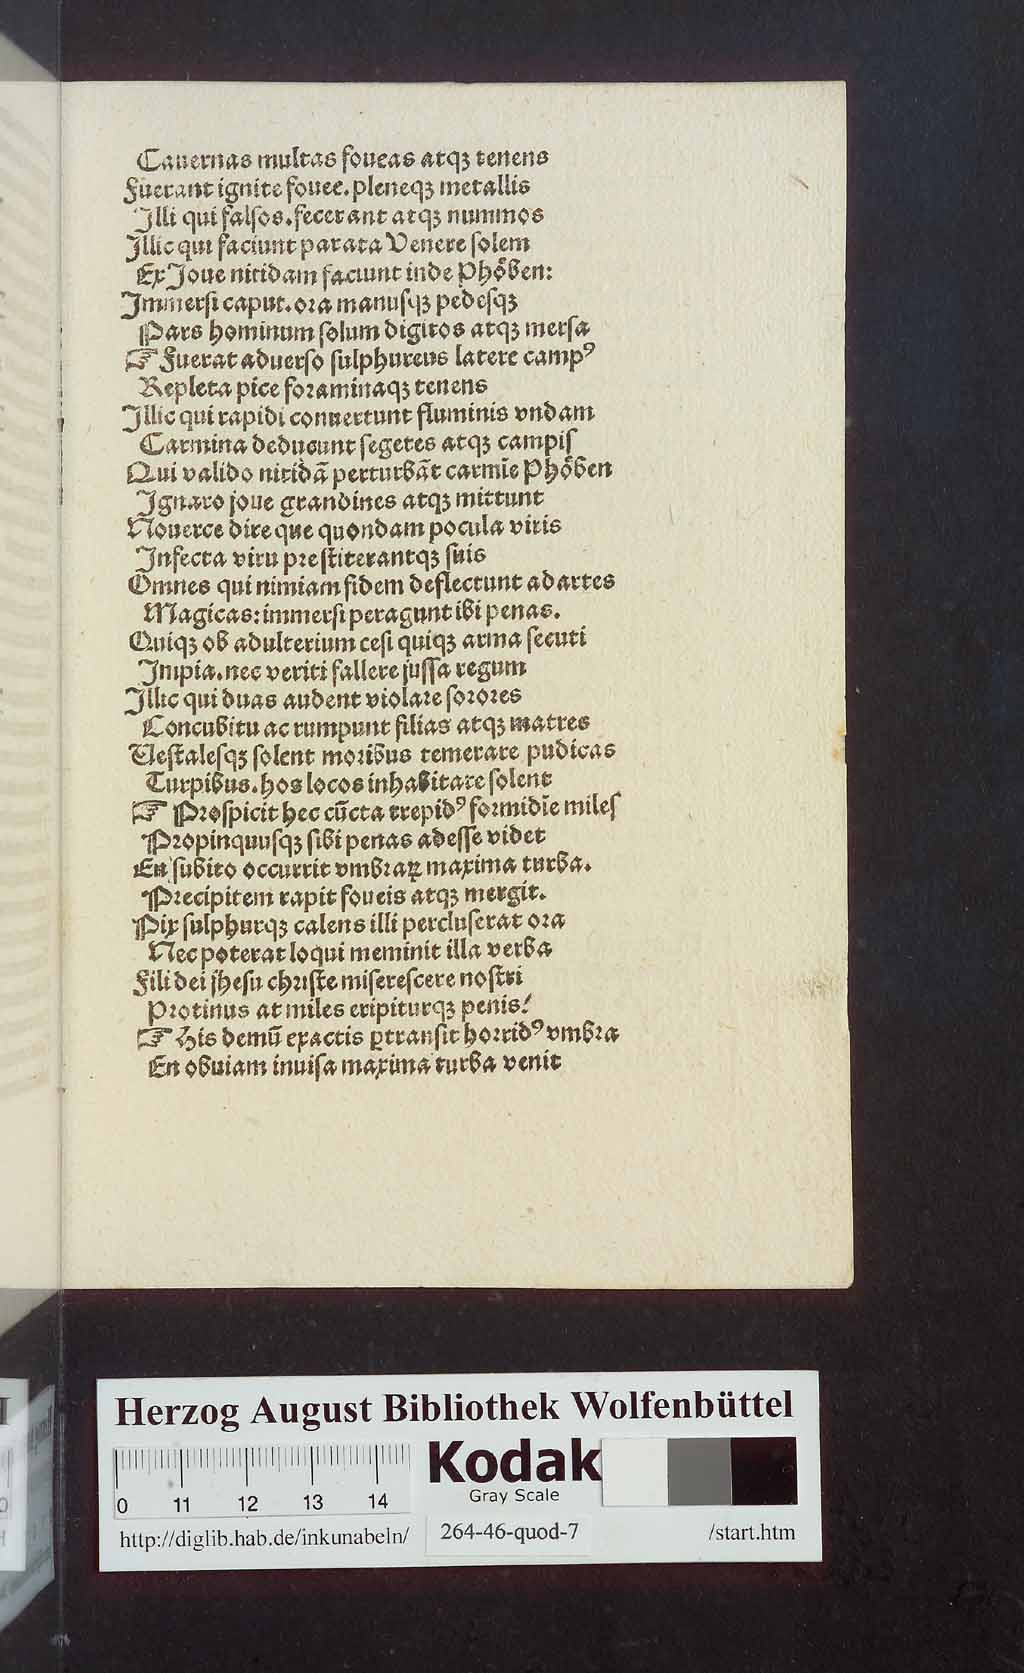 Cauernas multas foueas atqꝫ tenens
Fuerant ignite fouee. pleneqꝫ metallis
Illi qui falsos. fecerant atqꝫ nummos
Illic qui faciunt parata Venere solem
Ex Joue nitidam faciunt inde Phöben:
Immersi caput. ora manusqꝫ pedesqꝫ
Pars hominum solum digitos atqꝫ mersa
☞ Fuerat aduerso sulphureus latere campꝰ
Repleta pice foraminaqꝫ tenens
Illic qui rapidi conuertunt fluminis vndam
Carmina deducunt segetes atqꝫ campis
Qui valido nitidā perturbāt carmīe Phöben
Ignaro joue grandines atqꝫ mittunt
Nouerce dire que quondam pocula viris
Infecta viru prestiterantqꝫ suis
Omnes qui nimiam fidem deflectunt ad artes
Magicas: immersi peragunt ibi penas.
Quiqꝫ ob adulterium cesi quiqꝫ arma secuti
Impia. nec veriti fallere jussa regum
Illic qui duas audent violare sorores
Concubitu ac rumpunt filias atqꝫ matres
Vestalesqꝫ solent moribus temerare pudicas
Turpibus. hos locos inhabitare solent
☞ Prospicit hec cūcta trepidꝰ formidīe miles
Propinquusqꝫ sibi penas adesse videt
En subito occurrit vmbraꝝ maxima turba.
Precipitem rapit foueis atqꝫ mergit.
Pix sulphurqꝫ calens illi percluserat ora
Nec poterat loqui meminit illa verba
Fili dei jhesu christe miserescere nostri
Protinus at miles eripiturqꝫ penis!
☞ His demū exactis ꝑtransit horridꝰ vmbra
En obuiam inuisa maxima turba venit
Herzog August Bibliothek Wolfenbüttel
0 11 12 13 14
Kodak
Gray Scale
http://diglib.hab.de/inkunabeln/
264-46-quod-7
/start.htm